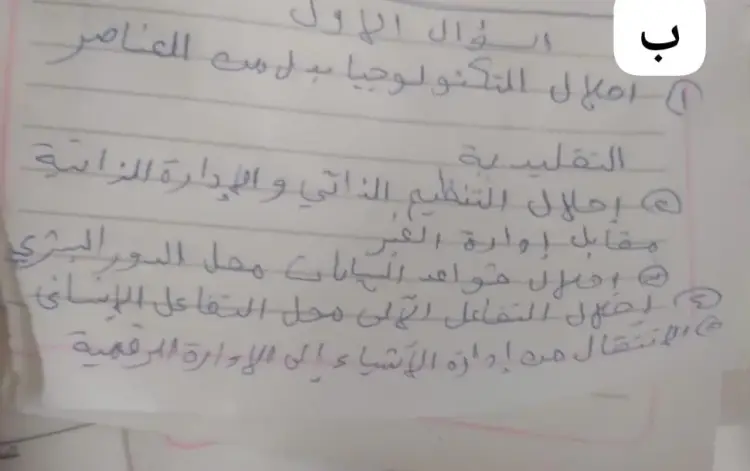 ب
السؤال الاول
① احلال التكنولوجيا بدل من العناصر
التقليدية
② إحلال التنظيم الذاتي والإدارة الذاتية
مقابل إدارة الغير
③ احلال قواعد البيانات محل الدور البشري
④ احلال التفاعل الآلي محل التفاعل الإنساني
⑤ الانتقال من إدارة الأشياء إلى الإدارة الرقمية